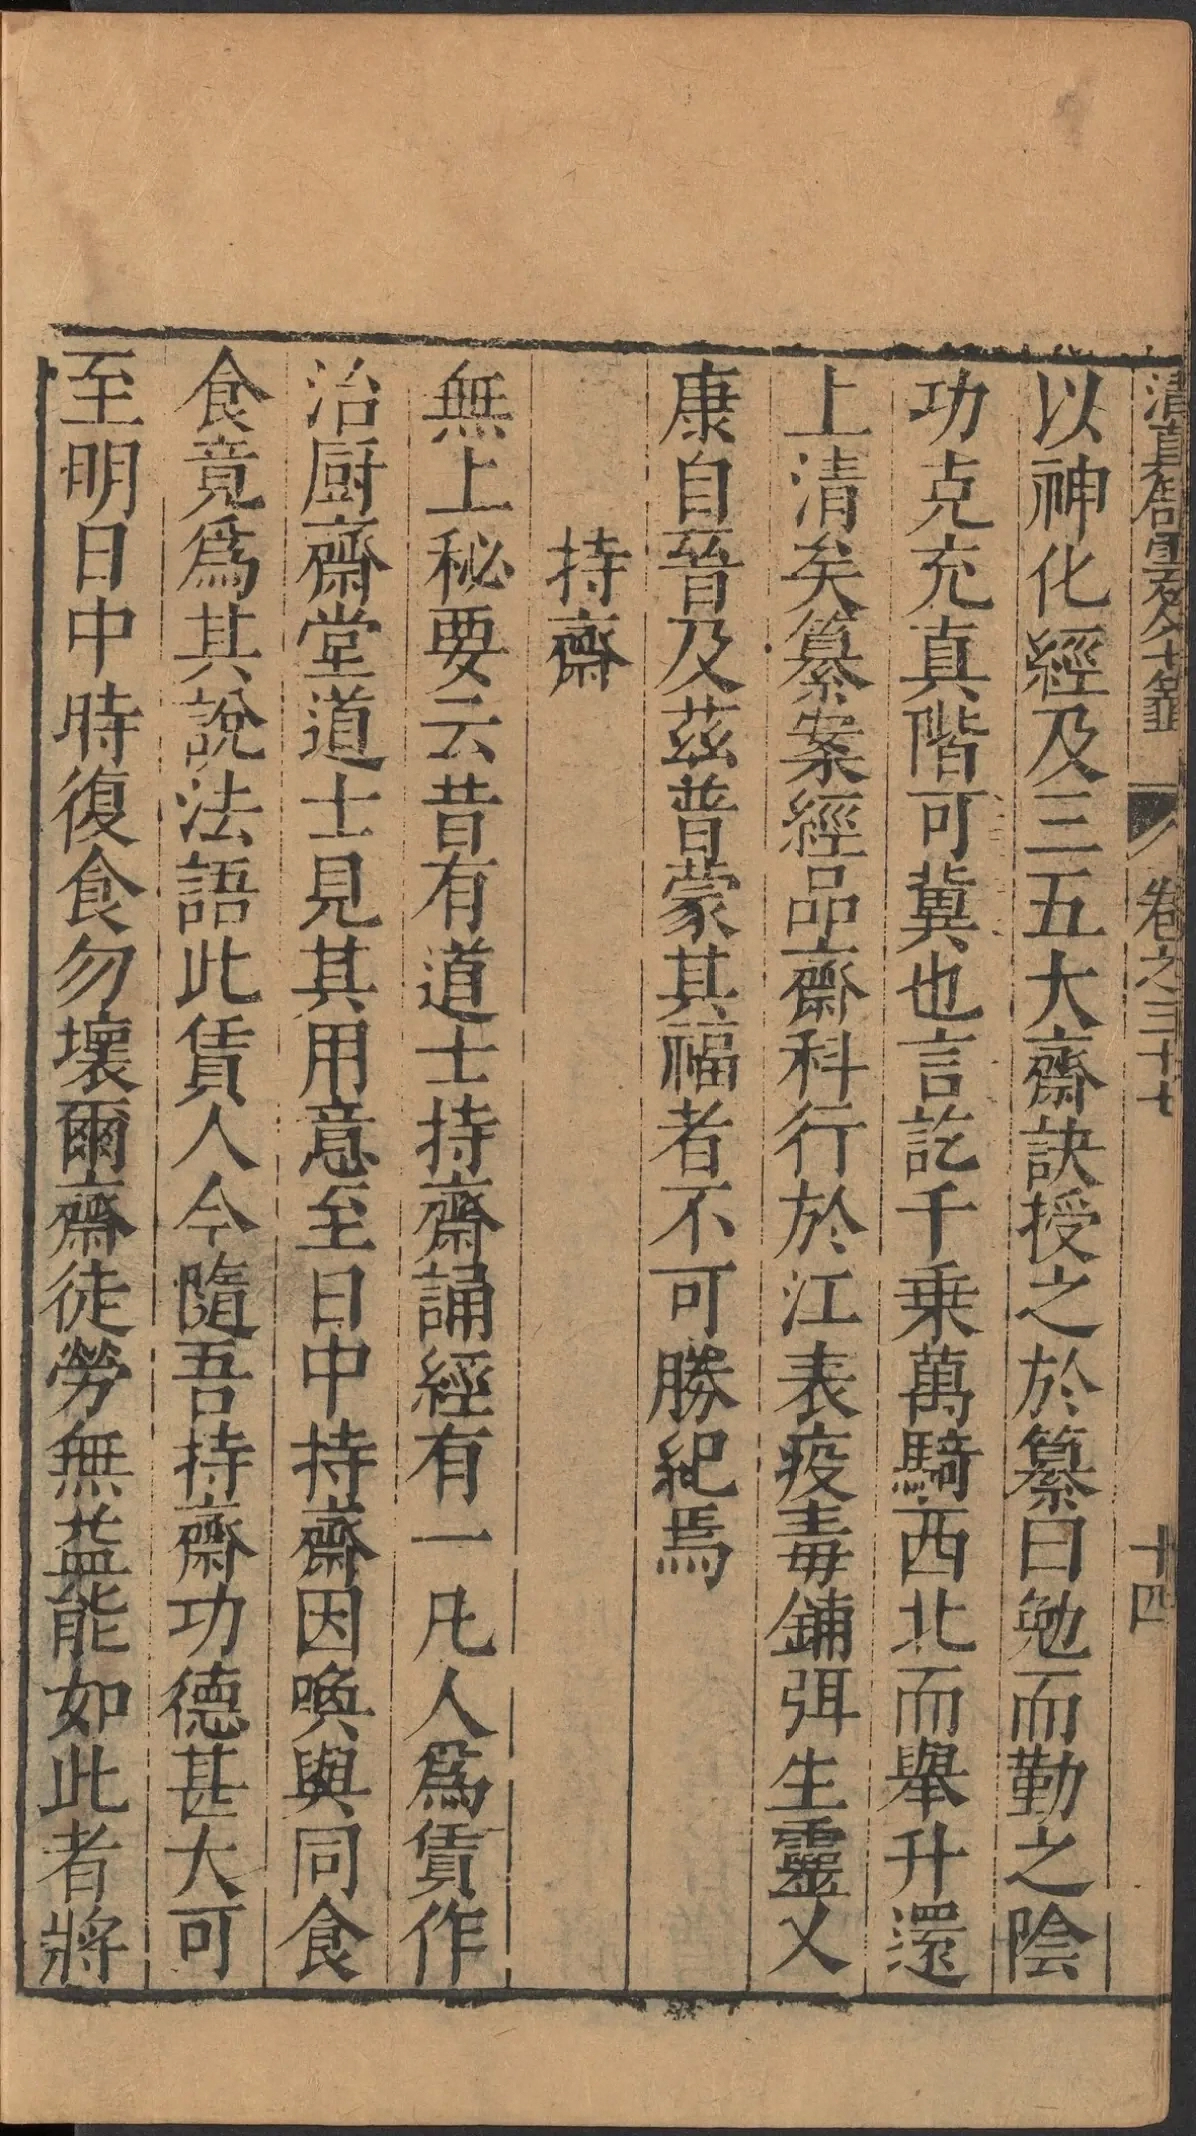 卷之三十七
十四
以神化經及三五大齋訣授之於纂曰勉而勤之陰
功克充真階可冀也言訖千乗萬騎西北而舉升還
上清矣纂案經品齋科行於江表疫毒鋪弭生靈乂
康自晉及茲普蒙其福者不可勝紀焉
持齋
無上秘要云昔有道士持齋誦經有一凡人爲賃作
治厨齋堂道士見其用意至日中持齋因喚與同食
食竟爲其說法語此賃人今隨吾持齋功德甚大可
至明日中時復食勿壞爾齋徒勞無益能如此者將